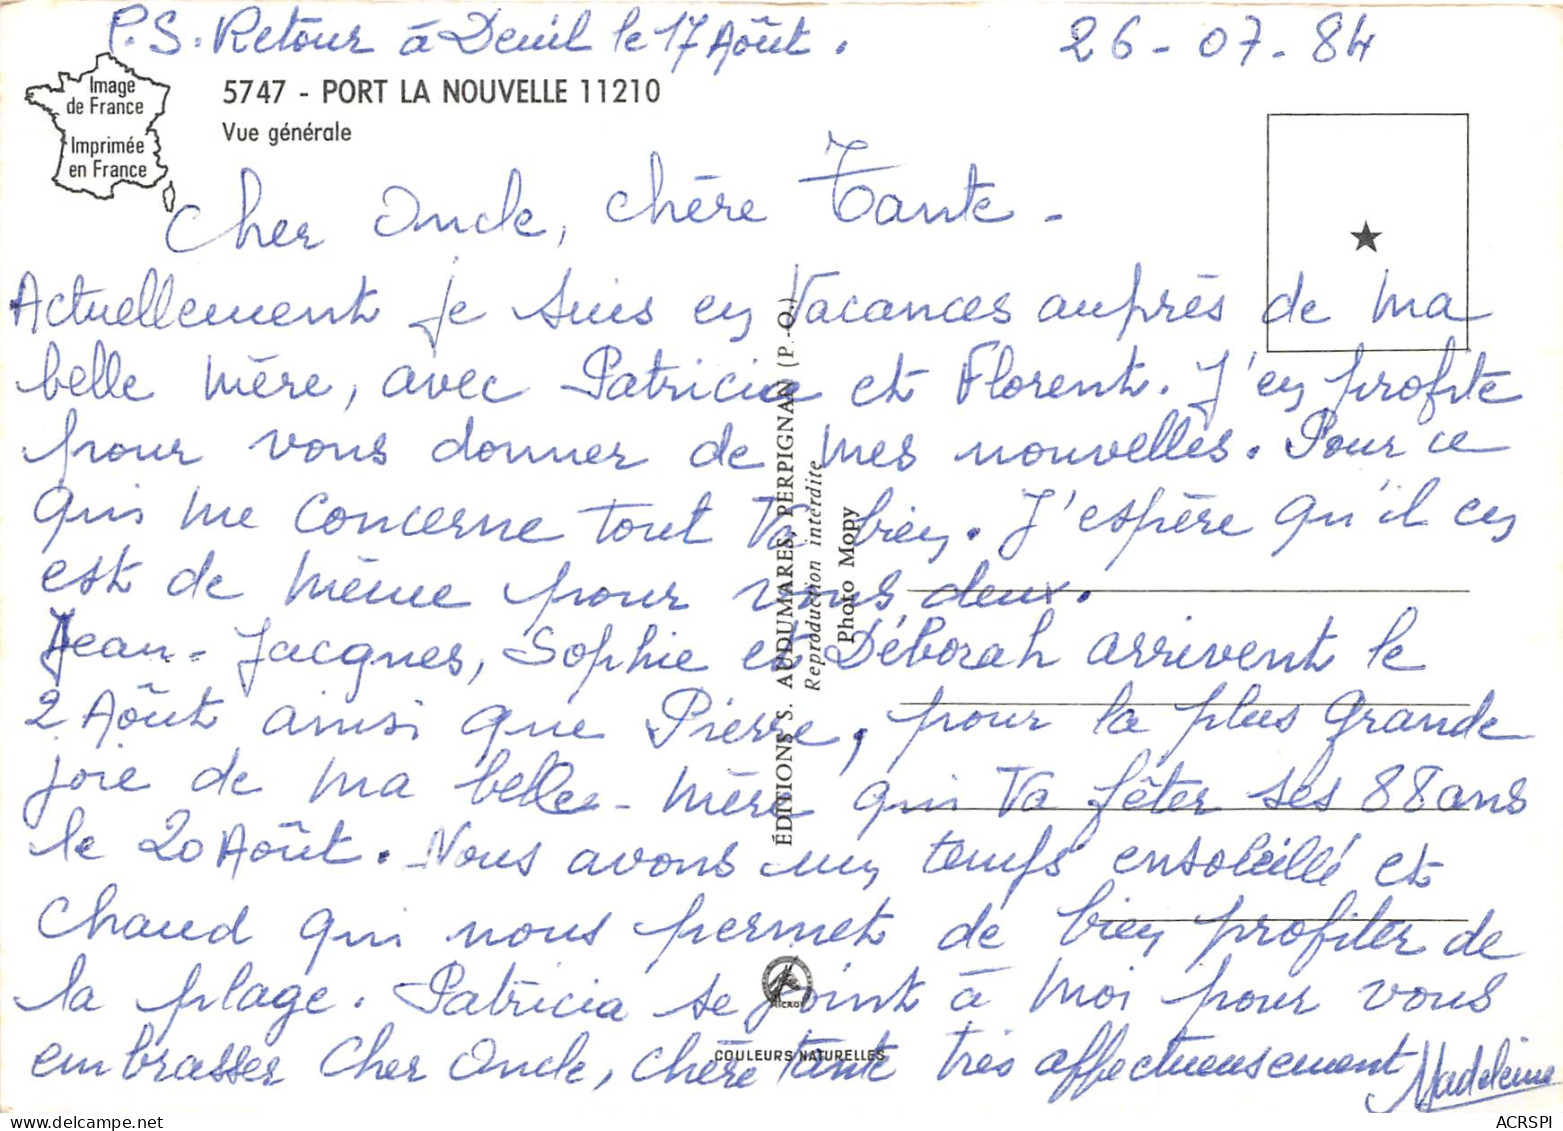 P.S. Retour à Deuil le 17 Août.
26-07-84
Image
de France
Imprimée
en France
5747 - PORT LA NOUVELLE 11210
Vue générale
Cher Oncle, chère Tante -
Actuellement je suis en Vacances auprès de ma
belle mère, avec Patricia et Florent. J'en profite
pour vous donner de mes nouvelles. Pour ce
qui me concerne tout va bien. J'espère qu'il en
est de même pour vous deux.
Jean-Jacques, Sophie et Déborah arrivent le
2 Août ainsi que Pierre, pour la plus grande
joie de ma belle-mère qui va fêter ses 88 ans
le 20 Août. Nous avons un temps ensoleillé et
chaud qui nous permet de bien profiler de
la plage. Patricia se joint à moi pour vous
embrasser Cher Oncle, chère tante très affectueusement
Madeleine
ÉDITIONS S. AUDUMARES, PERPIGNAN (P.-O.)
Reproduction interdite
Photo Mopy
COULEURS NATURELLES
ACRSPI